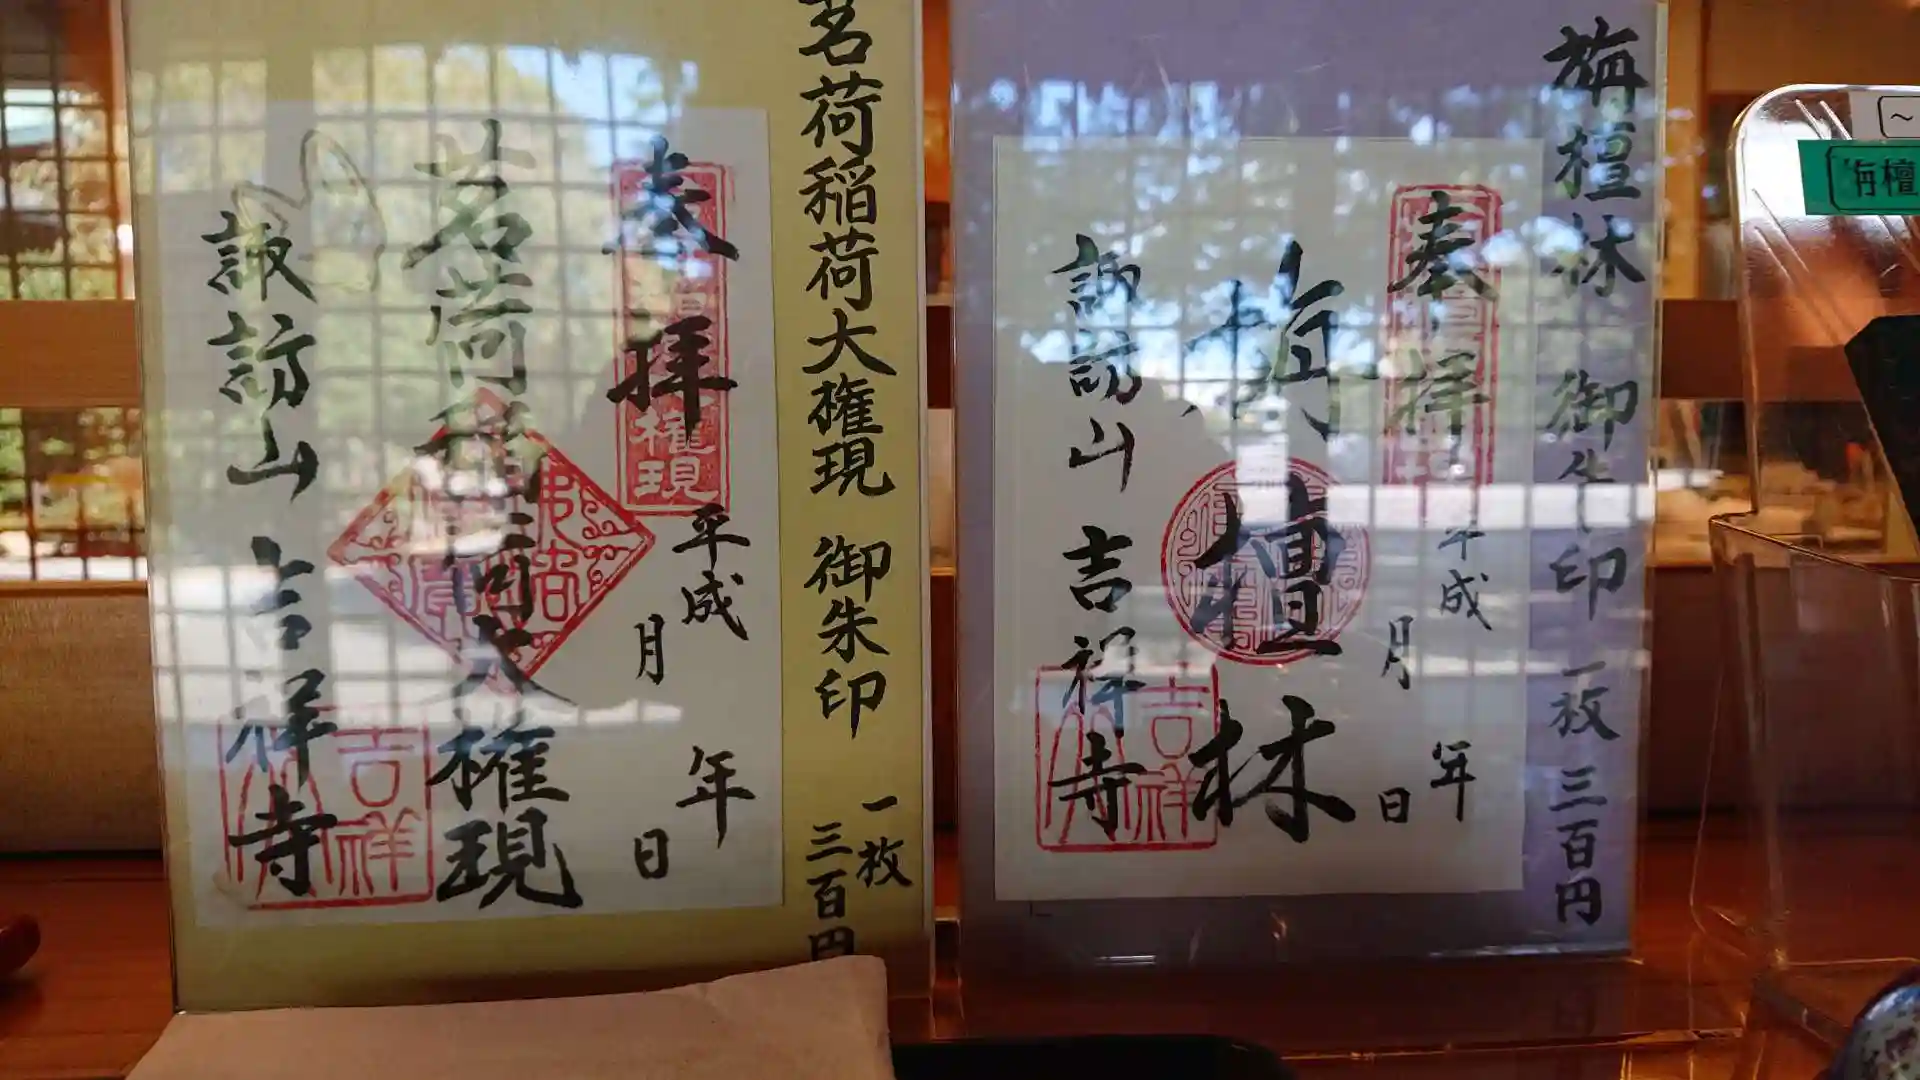 栴檀林 御朱印 一枚 三百円
奉拝
平成 年
月 日
栴檀林
諏訪山 吉祥寺
吉祥
茗荷稲荷大権現 御朱印 一枚
三百円
奉拝
権現
平成 年
月 日
茗荷稲荷大権現
諏訪山 吉祥寺
吉祥